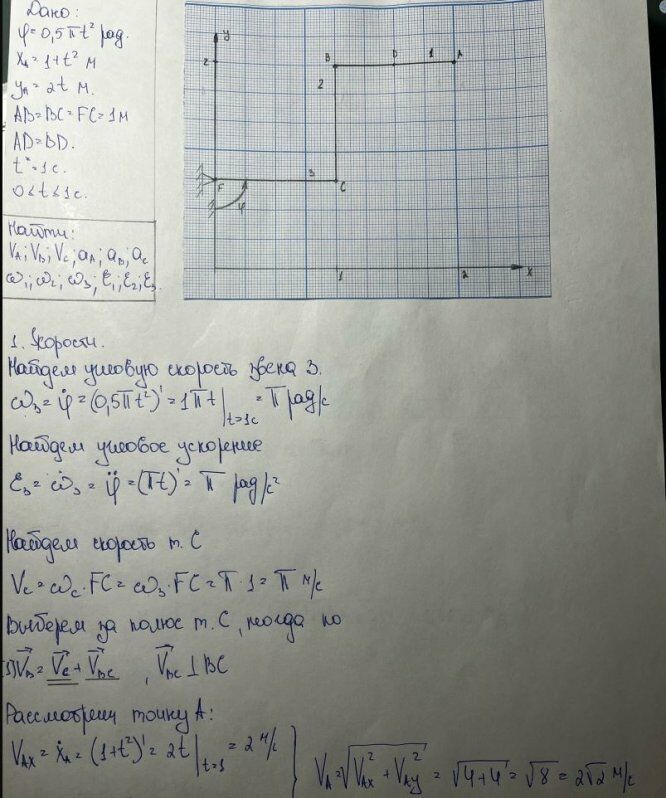 Дано:
φ=0,5πt² рад.
xₐ=1+t² м
yₐ=2t м.
AB=BC=FC=1м
AD=BD.
t*=1c.
0≤t≤1c.
Найти:
V_A; V_B; V_C; a_A; a_B; a_C
ω₁; ω₂; ω₃; ε₁; ε₂; ε₃.
y
2
B D 1 A
2
F 3 C
φ
1 2 x
1. Скорости.
Найдем угловую скорость звена 3.
ω₃=φ̇=(0,5πt²)'=1πt|t=1c=π рад/с
Найдем угловое ускорение
ε₃=ω̇₃=φ̈=(πt)'=π рад/с²
Найдем скорость т. С
V_C=ω_C·FC=ω₃·FC=π·1=π м/с
Выберем за полюс т. С, тогда по
1) V⃗_B=V⃗_C+V⃗_BC , V⃗_BC⊥BC
Рассмотрим точку А:
V_AX=ẋ_A=(1+t²)'=2t|t=1=2 м/с } V_A=√(V_AX²+V_AY²)=√(4+4)=√8=2√2 м/с